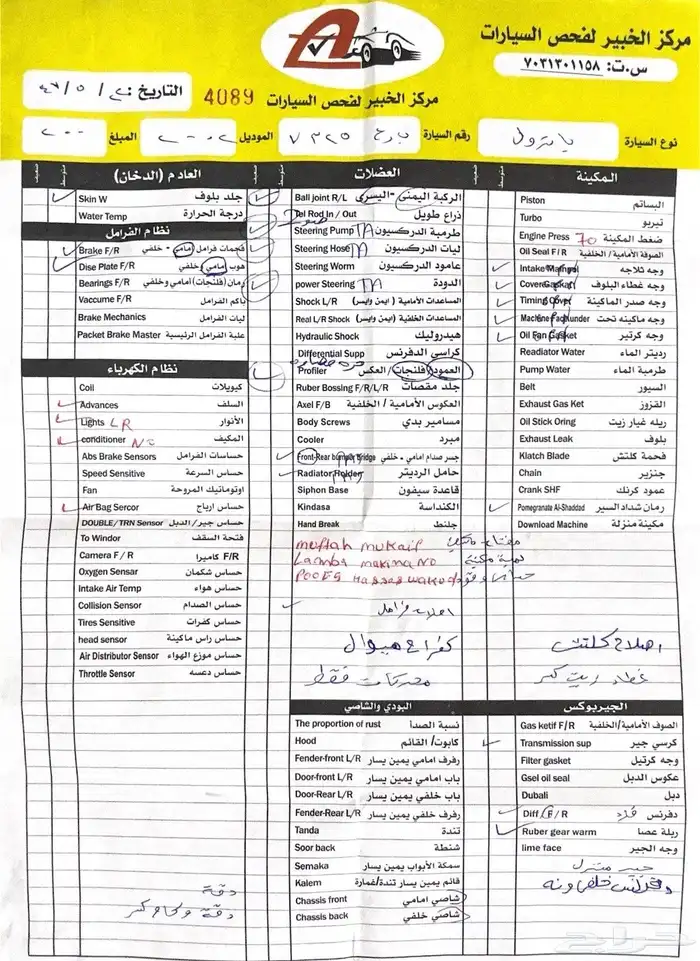 مركز الخبير لفحص السيارات
س.ت: ٧٠٣١٣٠١١٥٨
مركز الخبير لفحص السيارات
4089
التاريخ:
نوع السيارة
رقم السيارة
الموديل ٢٠٠٢
المبلغ ٢٠٠
المكينة
Piston البساتم
Turbo تيربو
Engine Press 70 ضغط المكينة
Oil Seal F/R الصوفة الأمامية/ الخلفية
Intake وجه ثلاجه
وجه غطاء البلوف
Timing Cover وجه صدر الماكينة
وجه ماكينه تحت
Oil Fan Gasket وجه كرتير
Readiator Water رديتر الماء
Pump Water طرمبة الماء
Belt السيور
Exhaust Gas Ket القزوز
Oil Stick Oring ريله غبار زيت
Exhaust Leak بلوف
Klatch Blade فحمة كلتش
Chain جنزير
Crank SHF عمود كرنك
Pomegranate Al-Shaddad رمان شداد السير
Download Machine مكينة منزلة
اصلاح كلتش
الجيربوكس
Gas ketif F/R الصوف الأمامية/الخلفية
Transmission sup كرسي جير
Filter gasket وجه كرتيل
Gsel oil seal عكوس الدبل
Dubali دبل
Diff F/R دفرنس
Ruber gear warm ريلة عصا
lime face وجه الجير
العضلات
Ball joint R/L الركبة اليمنى - اليسرى
Tel Rod In / Out ذراع طويل
Steering Pump طرمبة الدركسيون
Steering Hose ليات الدركسيون
Steering Worm عامود الدركسيون
power Steering الدودة
Shock L/R المساعدات الأمامية (ايمن وايسر)
Real L/R Shock المساعدات الخلفية (ايمن وايسر)
Hydraulic Shock هيدروليك
Differential Supp كراسي الدفرنس
Profiler العمود/فلنجات/ العكس
Ruber Bossing F/R/L/R جلد مقصات
Axel F/B العكوس الأمامية / الخلفية
Body Screws مسامير بدي
Cooler مبرد
Front-Rear bumper Bridge جسر صدام امامي - خلفي
Radiator Holder حامل الرديتر
Siphon Base قاعدة سيفون
Kindasa الكنداسة
Hand Break جلنط
muftah mukaif
Lamba makina NO
محركات فقط
البودي والشاصي
The proportion of rust نسبة الصدأ
Hood كابوت/ القائم
Fender-front L/R رفرف امامي يمين يسار
Door-front L/R باب امامي يمين يسار
Door-Rear L/R باب خلفي يمين يسار
Fender-Rear L/R رفرف خلفي يمين يسار
Tanda تندة
Soor back شنطة
Semaka سمكة الأبواب يمين يسار
Kalem قائم يمين يسار تندة/غمارة
Chassis front شاصي امامي
Chassis back شاصي خلفي
العادم (الدخان)
متوسط
ضعيف
Skin W جلد بلوف
Water Temp درجة الحرارة
نظام الفرامل
Brake F/R فحمات فرامل امامي - خلفي
Disc Plate F/R هوب امامي خلفي
Bearings F/R رمان (فلنجات) امامي وخلفي
Vaccume F/R باكم الفرامل
Brake Mechanics ليات الفرامل
Packet Brake Master علبة الفرامل الرئيسية
نظام الكهرباء
Coil كويولات
Advances السلف
Lights LR الأنوار
conditioner NO المكيف
Abs Brake Sensors حساسات الفرامل
Speed Sensitive حساس السرعة
Fan اوتوماتيك المروحة
Air Bag Sercor حساس ارباج
DOUBLE/TRN Sensor حساس جير/ الدبل
To Windor فتحة السقف
Camera F / R كاميرا F/R
Oxygen Sensar حساس شكمان
Intake Air Temp حساس هواء
Collision Sensor حساس الصدام
Tires Sensitive حساس كفرات
head sensor حساس راس ماكينة
Air Distributor Sensor حساس موزع الهواء
Throttle Sensor حساس دعسه
دقة
حراج